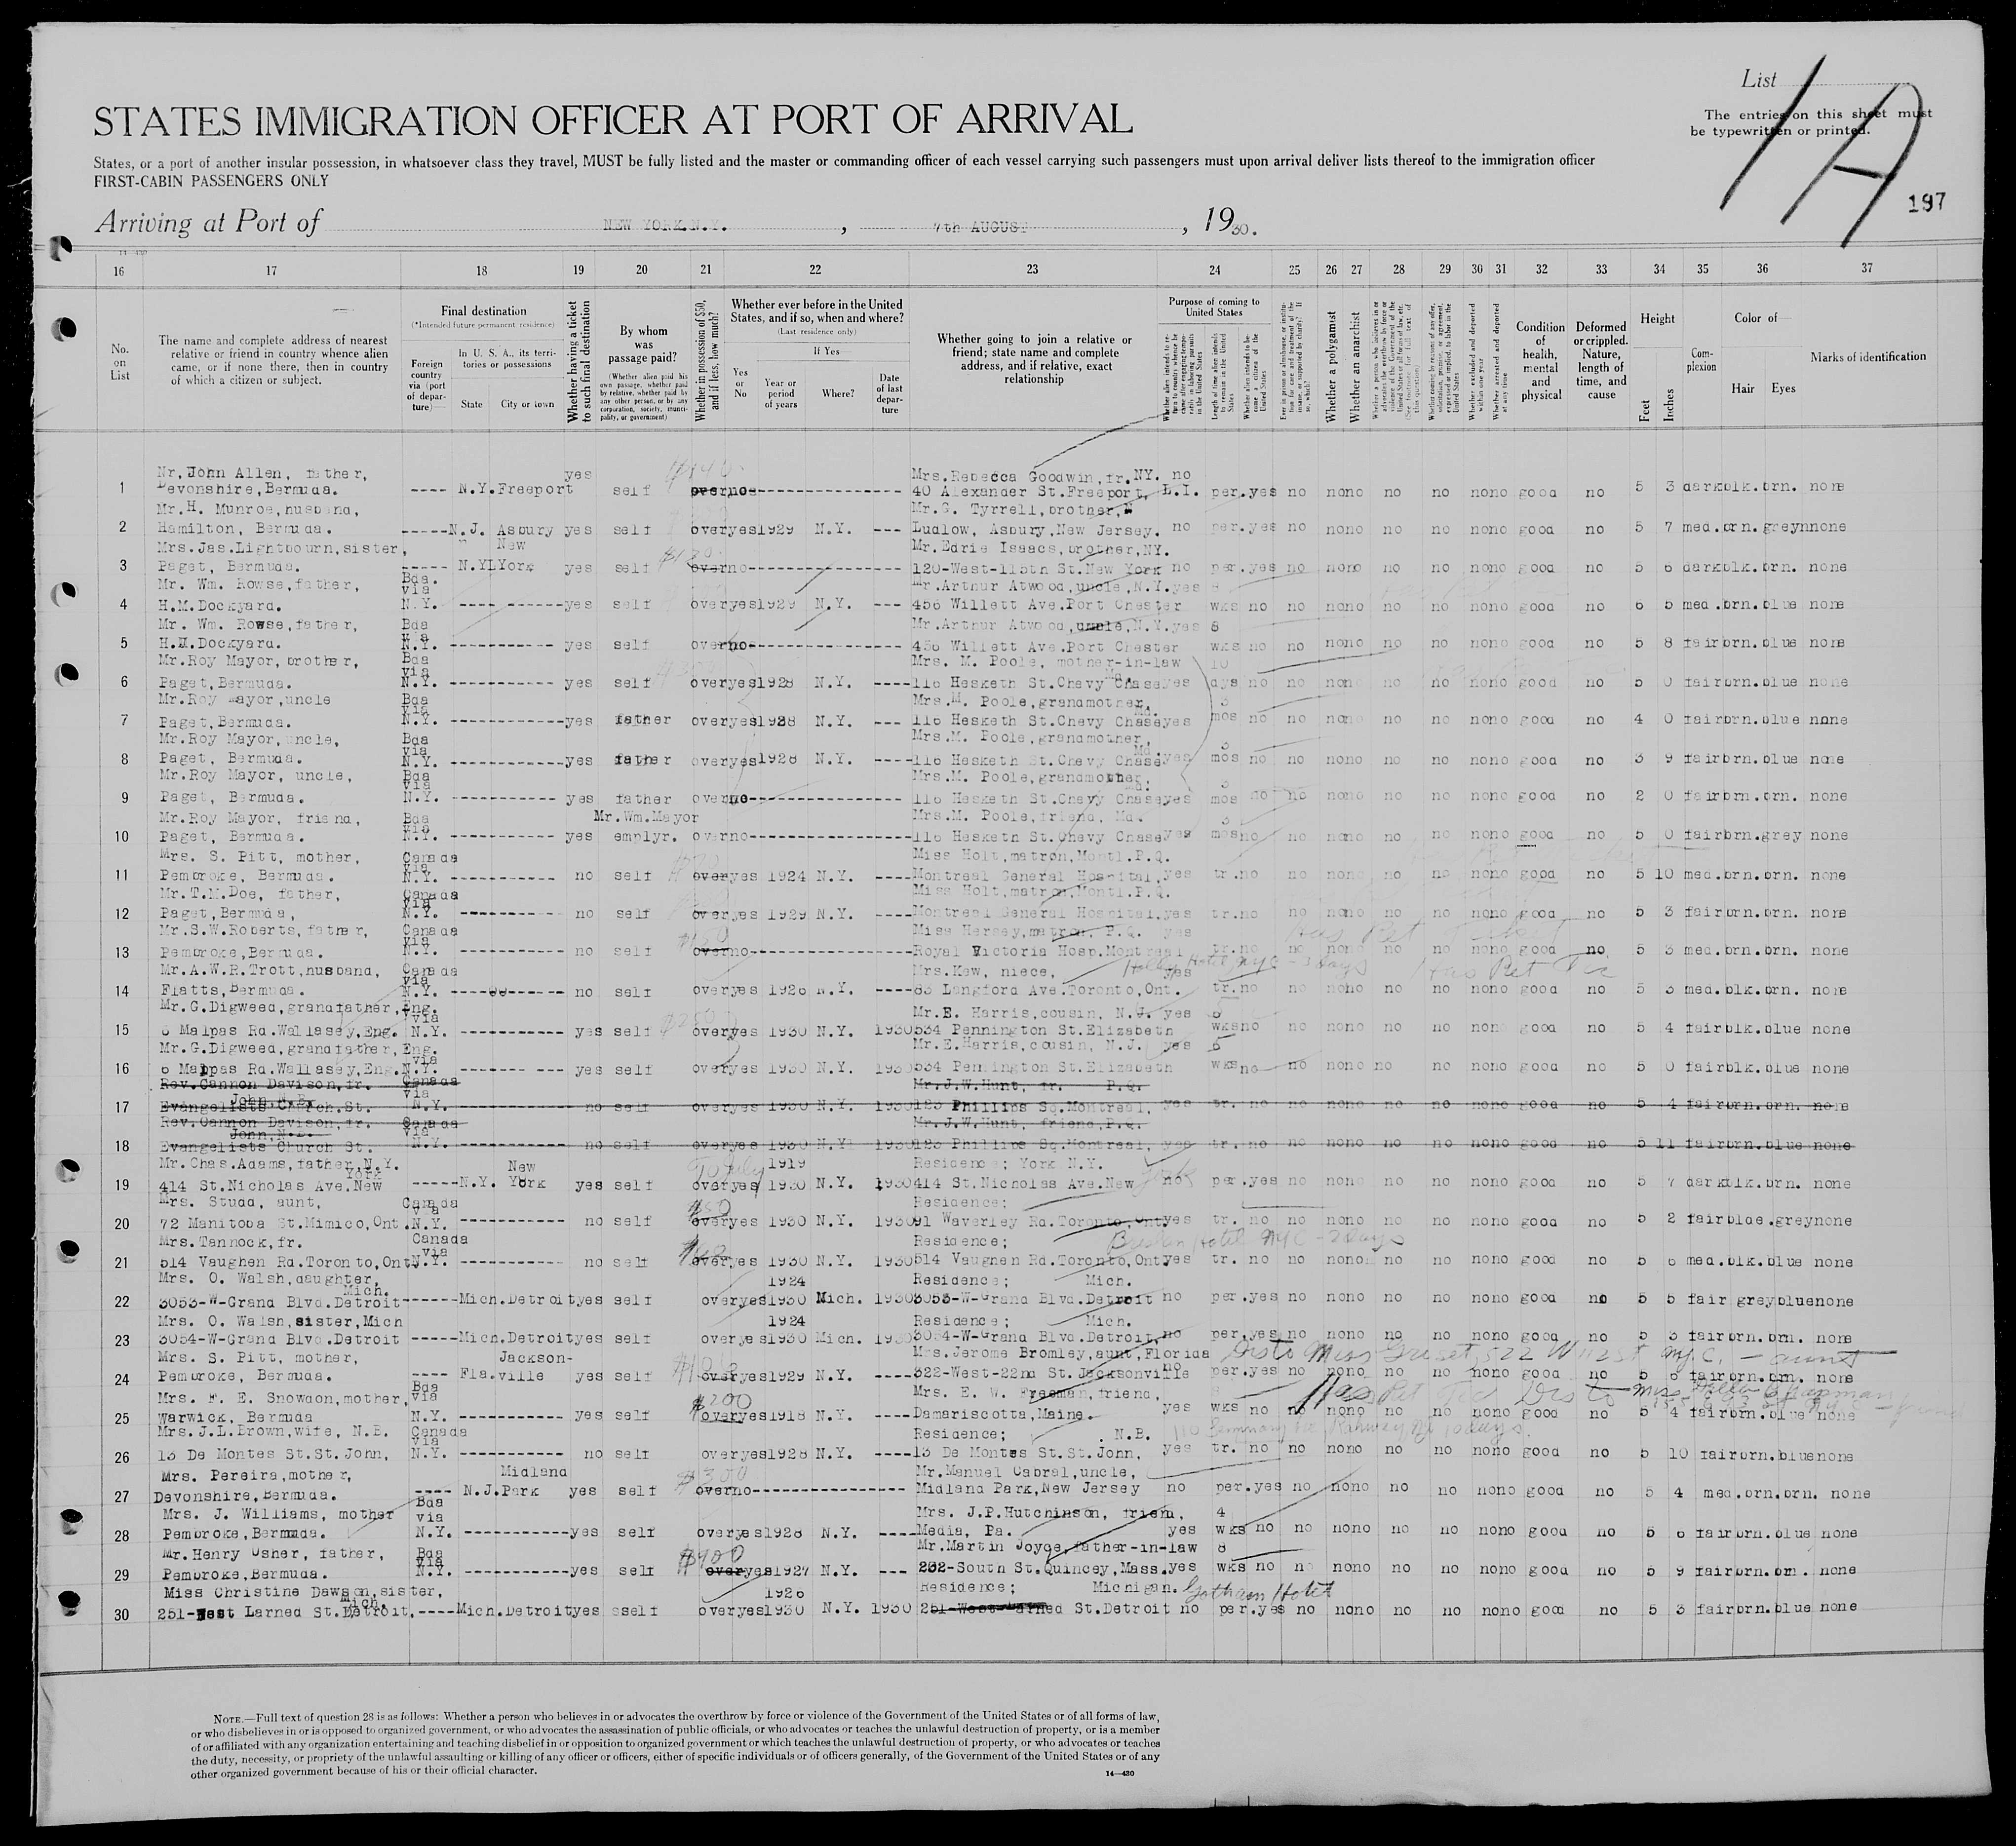 List
1A
The entries on this sheet must
be typewritten or printed.
STATES IMMIGRATION OFFICER AT PORT OF ARRIVAL
States, or a port of another insular possession, in whatsoever class they travel, MUST be fully listed and the master or commanding officer of each vessel carrying such passengers must upon arrival deliver lists thereof to the immigration officer
FIRST-CABIN PASSENGERS ONLY
197
Arriving at Port of NEW YORK.N.Y. , 7th AUGUST , 1930.
16 17 18 19 20 21 22 23 24 25 26 27 28 29 30 31 32 33 34 35 36 37
No. on List
The name and complete address of nearest relative or friend in country whence alien came, or if none there, then in country of which a citizen or subject.
Final destination
(*Intended future permanent residence)
Foreign country via (port of departure)—
In U. S. A., its territories or possessions
State
City or town
Whether having a ticket to such final destination
By whom was passage paid?
(Whether alien paid his own passage, whether paid by relative, whether paid by any other person, or by any corporation, society, municipality, or government)
Whether in possession of $50, and if less, how much?
Whether ever before in the United States, and if so, when and where?
(Last residence only)
Yes or No
If Yes
Year or period of years
Where?
Date of last departure
Whether going to join a relative or friend; state name and complete address, and if relative, exact relationship
Purpose of coming to United States
Length of time alien intends to remain in the United States
Whether alien intends to become a citizen of the United States
Whether a polygamist
Whether an anarchist
Whether excluded and deported within one year
Whether arrested and deported at any time
Condition of health, mental and physical
Deformed or crippled. Nature, length of time, and cause
Height
Feet
Inches
Complexion
Color of—
Hair
Eyes
Marks of identification
Mr.John Allen, father, yes Mrs.Rebecca Goodwin,fr.NY. no
1 Devonshire,Bermuda. ---- N.Y.Freeport self over no 40 Alexander St.Freeport, L.I. per.yes no nono no no nono good no 5 3 dark blk.brn. none
Mr.H. Munroe,husband, Mr.G. Tyrrell,brother,
2 Hamilton, Bermuda. -----N.J. Asbury yes self overyes1929 N.Y. --- Ludlow, Asbury,New Jersey. no per.yes no nono no no nono good no 5 7 med.brn.greynnone
Mrs.Jas.Lightbourn,sister, New Mr.Edrie Isaacs,brother,NY.
3 Paget, Bermuda. ----- N.Y.York yes self over no 120-West-115th St.New York no per.yes no nono no no nono good no 5 6 dark blk.brn. none
Mr. Wm. Rowse,father, Bda. via Mr.Arthur Atwood,uncle,N.Y.yes 8
4 H.M.Dockyard. N.Y. yes self overyes1929 N.Y. --- 456 Willett Ave.Port Chester wks no no nono no no nono good no 6 5 med.brn.blue none
Mr. Wm. Rowse,father, Bda via Mr.Arthur Atwood,uncle,N.Y.yes 8
5 H.M.Dockyard. N.Y. yes self over no 456 Willett Ave.Port Chester wks no no nono no no nono good no 5 8 fair brn.blue none
Mr.Roy Mayor,brother, Bda via Mrs. M. Poole, mother-in-law 10
6 Paget,Bermuda. N.Y. yes self overyes1928 N.Y. ---116 Hesketh St.Chevy Chase Md. yes dys no no nono no no nono good no 5 0 fair brn.blue none
Mr.Roy Mayor,uncle Bda via Mrs.M. Poole,grandmother, Md. 3
7 Paget,Bermuda. N.Y. yes father overyes1928 N.Y. --- 116 Hesketh St.Chevy Chaseyes mos no no nono no no nono good no 4 0 fair brn.blue none
Mr.Roy Mayor,uncle, Bda via Mrs.M. Poole,grandmother, Md. 3
8 Paget, Bermuda. N.Y. yes father overyes1928 N.Y. ----116 Hesketh St.Chevy Chase yes mos no no nono no no nono good no 3 9 fair brn.blue none
Mr.Roy Mayor, uncle, Bda via Mrs.M. Poole,grandmother, Md. 3
9 Paget, Bermuda. N.Y. yes father over no 116 Hesketh St.Chevy Chaseyes mos no no nono no no nono good no 2 0 fair brn.brn. none
Mr.Roy Mayor, friend, Bda via Mr.Wm.Mayor Mrs.M. Poole,friend, Md. 3
10 Paget, Bermuda. N.Y. yes emplyr. over no 116 Hesketh St.Chevy Chaseyes mos no no nono no no nono good no 5 0 fair brn.grey none
Mrs. S. Pitt, mother, Canada via Miss Holt,matron,Montl.P.Q.
11 Pembroke, Bermuda. N.Y. no self overyes 1924 N.Y. ----Montreal General Hospital,yes tr.no no nono no no nono good no 5 10 med.brn.brn. none
Mr.T.M.Doe, father, Canada via Miss Holt,matron,Montl.P.Q.
12 Paget,Bermuda, N.Y. no self overyes 1929 N.Y. ----Montreal General Hospital.yes tr.no no nono no no nono good no 5 3 fair brn.brn. none
Mr.S.W.Roberts,father, Canada via Miss Hersey,matron, P.Q. yes Has Ret Ticket
13 Pembroke,Bermuda. N.Y. no self over no Royal Victoria Hosp.Montreal tr.no no nono no no nono good no 5 3 med.brn.brn. none
Mr.A.W.R.Trott,husband, Canada via Mrs.Kew, niece, Holley Hotel NYC - 3 days yes Has Ret Tic
14 Flatts,Bermuda. N.Y. no self overyes 1926 N.Y. ----83 Langford Ave.Toronto,Ont. tr.no no nono no no nono good no 5 3 med.blk.brn. none
Mr.G.Digweed,grandfather,Eng. via Mr.E. Harris,cousin, N.J. yes 5
15 6 Malpas Rd.Wallasey,Eng. N.Y. yes self overyes 1930 N.Y. 1930534 Pennington St.Elizabeth wksno no nono no no nono good no 5 4 fair blk.blue none
Mr.G.Digweed,grandfather,Eng. via Mr.E.Harris,cousin, N.J. yes 5
16 6 Malpas Rd.Wallasey,Eng.N.Y. yes self overyes 1930 N.Y. 1930534 Pennington St.Elizabeth wks no no nono no no nono good no 5 0 fair blk.blue none
Rev.Cannon Davison,fr. John,N.B. Canada via Mr.J.W.Hunt, fr. P.Q.
17 Evangelists Church,St. N.Y. no self overyes 1930 N.Y. 1930123 Phillips Sq.Montreal, yes tr. no no nono no no nono good no 5 4 fair brn.brn. none
Rev.Cannon Davison,fr. John,N.B. Canada via Mr.J.W.Hunt, friend,P.Q.
18 Evangelists Church St. N.Y. no self overyes 1930 N.Y. 1930123 Phillips Sq.Montreal, yes tr. no no nono no no nono good no 5 11 fair brn.blue none
Mr.Chas.Adams,father,N.Y. York New 1919 Residence; York N.Y.
19 414 St.Nicholas Ave.New -----N.Y. York yes self overyes 1930 N.Y. 1930414 St.Nicholas Ave.New no per.yes no nono no no nono good no 5 7 dark blk.brn. none
Mrs. Studd, aunt, Canada via $50 Residence;
20 72 Manitoba St.Mimico,Ont.N.Y. no self overyes 1930 N.Y. 193091 Waverley Rd.Toronto,Ontyes tr. no no nono no no nono good no 5 2 fair blde.greynone
Mrs.Tannock,fr. Canada via Residence; Hotel NYC - 2 days
21 514 Vaughen Rd.Toronto,Ont N.Y. no self overyes 1930 N.Y. 1930514 Vaughen Rd.Toronto,Ontyes tr. no no nono no no nono good no 5 6 med.blk.blue none
Mrs. O. Walsh,daughter, Mich. 1924 Residence; Mich.
22 3053-W-Grand Blvd.Detroit------Mich.Detroityes self overyes1930 Mich. 19303053-W-Grand Blvd.Detroit no per.yes no nono no no nono good no 5 5 fair greybluenone
Mrs. O. Walsh,sister,Mich 1924 Residence; Mich.
23 3054-W-Grand Blvd.Detroit -----Mich.Detroityes self overyes1930 Mich. 19303054-W-Grand Blvd.Detroit,no per.yes no nono no no nono good no 5 3 fair brn.brn. none
Mrs. S. Pitt, mother, Jackson- Mrs.Jerome Bromley,aunt,Florida no
24 Pembroke, Bermuda. ---- Fla.ville yes self overyes1929 N.Y. ----322-West-22nd St.Jacksonville per.yes no nono no no nono good no 5 6 fair brn.brn. none
Mrs. F. E. Snowdon,mother, Bda via $200 Mrs. E. W. Freeman,friend, 8 Has Ret Tic
25 Warwick, Bermuda N.Y. yes self overyes1918 N.Y. ----Damariscotta,Maine. yes wks no no nono no no nono good no 5 4 fair brn.blue none
Mrs.J.L.Brown,wife, N.B. Canada via Residence; N.B. Rahway NJ 10 days.
26 13 De Montes St.St.John, N.Y. no self overyes1928 N.Y. ----13 De Montes St.St.John, yes tr. no no nono no no nono good no 5 10 fair brn.bluenone
Mrs. Pereira,mother, Midland $300 Mr.Manuel Cabral,uncle,
27 Devonshire,Bermuda. ---- N.J.Park yes self over no Midland Park,New Jersey no per.yes no nono no no nono good no 5 4 med.brn.brn. none
Mrs. J. Williams, mother Bda via Mrs. J.P.Hutchinson, friend, 4
28 Pembroke,Bermuda. N.Y. yes self overyes1928 N.Y. ----Media, Pa. yes wks no no nono no no nono good no 5 6 fair brn.blue none
Mr.Henry Usher, father, Bda via $400 Mr.Martin Joyce,father-in-law 8
29 Pembroke,Bermuda. N.Y. yes self overyes1927 N.Y. --- 232-South St.Quincey,Mass.yes wks no no nono no no nono good no 5 9 fair brn.brn. none
Miss Christine Dawson,sister, Mich. 1926 Residence; Michigan. Gotham Hotel
30 251-West Larned St.Detroit,----Mich.Detroityes sself overyes1930 N.Y. 1930 251-West Larned St.Detroit no per.yes no nono no no nono good no 5 3 fair brn.blue none
NOTE.—Full text of question 28 is as follows: Whether a person who believes in or advocates the overthrow by force or violence of the Government of the United States or of all forms of law,
or who disbelieves in or is opposed to organized government, or who advocates the assassination of public officials, or who advocates or teaches the unlawful destruction of property, or is a member
of or affiliated with any organization entertaining and teaching disbelief in or opposition to organized government or which teaches the unlawful destruction of property, or who advocates or teaches
the duty, necessity, or propriety of the unlawful assaulting or killing of any officer or officers, either of specific individuals or of officers generally, of the Government of the United States or of any
other organized government because of his or their official character.
14—430